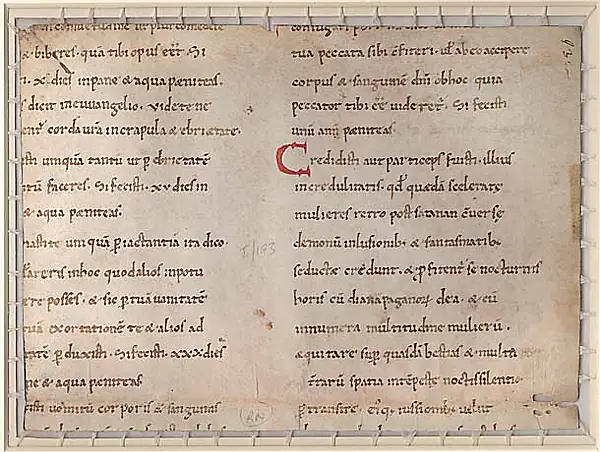 ut plus comede
& biberes. quā tibi opus eēt. Si
. x. dies in pane & aqua pæniteas.
s dicit in euuangelio. Videte ne
ent̄ corda ur̄a in crapula & ebrietate.
sti umquā tantū ut ꝑ ebrietatē
tū faceres. Si fecisti. xv dies in
& aqua pæniteas.
umquā ꝑ iactantia ita dico
in hoc quod alios in potu
ere posses. & sic ꝑ tuā uanitatē
tuā exortationē te & alios ad
tatē ꝑduxisti. Si fecisti. xxx dies
ne & aqua pæniteas
isti uomitū corporis & sanguinis
I/193
tua peccata sibi cfiteri. ul̄ ab eo accipere
corpus & sanguinē dn̄i ob hoc quia
peccator tibi eē uideret̄. Si fecisti
unū annū pæniteas.
Credidisti aut particeps fuisti. illius
incredulitatis. qd̄ quædā sceleratę
mulieres retro post satanan cuersę
demonū inlusionib; & fantasmatib;
seductæ credunt. & ꝓfitent̄ se nocturnis
horis cū diana paganoꝝ dea. & cū
innumera multitudine mulierū.
æquitare sup quasdā bestias & multa
t̄rarū spatia intēpestę noctis silentio
ꝑtransire. eiq; iussionib; uelut